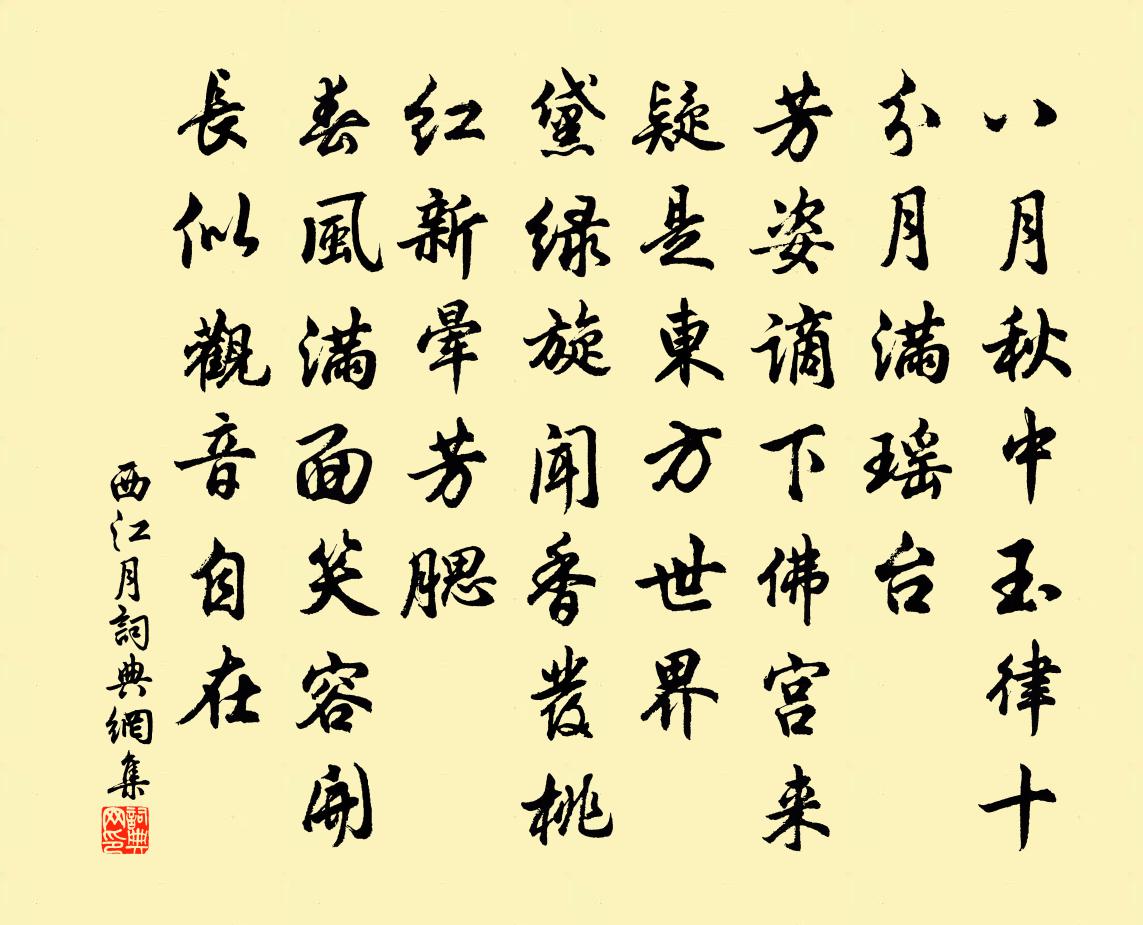 八月秋中玉律十
分月满瑶台
芳姿谪下佛宫来
疑是東方世界
黛绿旋闻香發桃
红新晕芳腮
春風满面笑容開
長似觀音自在
西江月詞典網集
詞典
网印